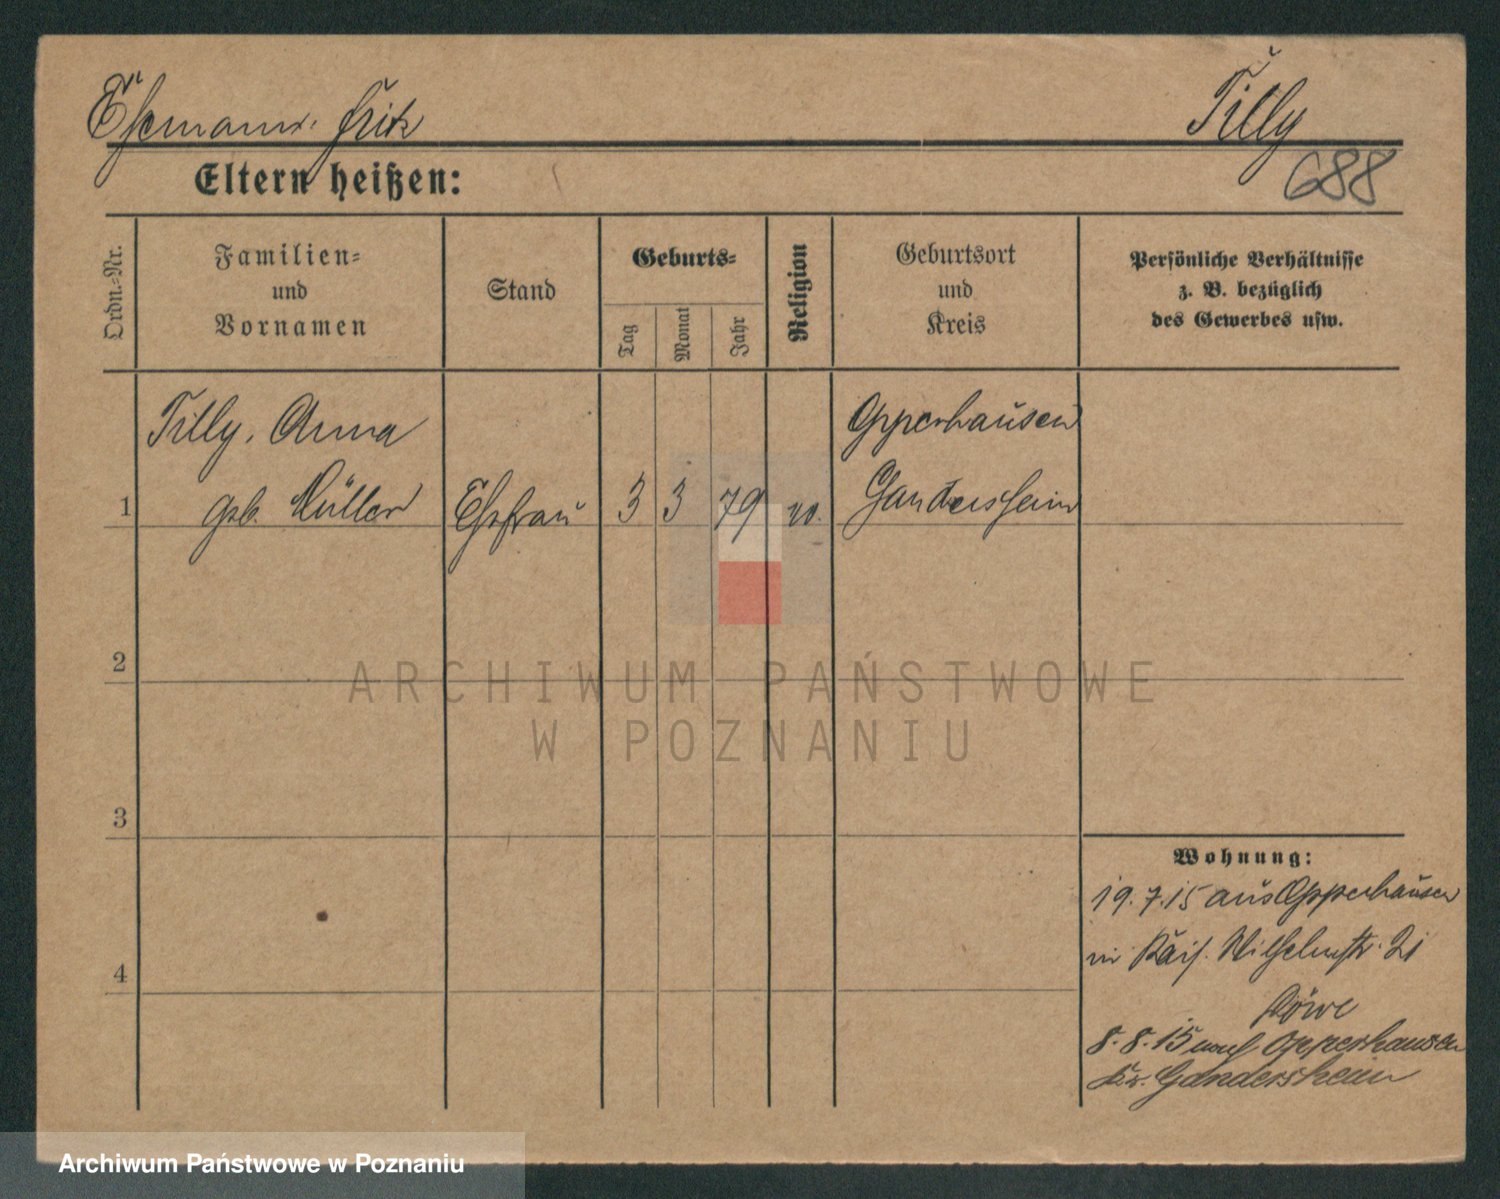 Ehemann: Fritz
Tilly
688
Eltern heißen:
Ordn.-Nr.
Familien-
und
Vornamen
Stand
Geburts-
Tag
Monat
Jahr
Religion
Geburtsort
und
Kreis
Persönliche Verhältnisse
z. B. bezüglich
des Gewerbes usw.
Tilly, Anna
Opperhausen
1 geb. Müller Ehefrau 3 3 79 Gandersheim
2
ARCHIWUM PAŃSTWOWE
W POZNANIU
3
Wohnung:
19.7.15 aus Opperhausen
in Kais. Wilhelmstr. 21
4
8.8.15 nach Opperhausen
Kr. Gandersheim
Archiwum Państwowe w Poznaniu